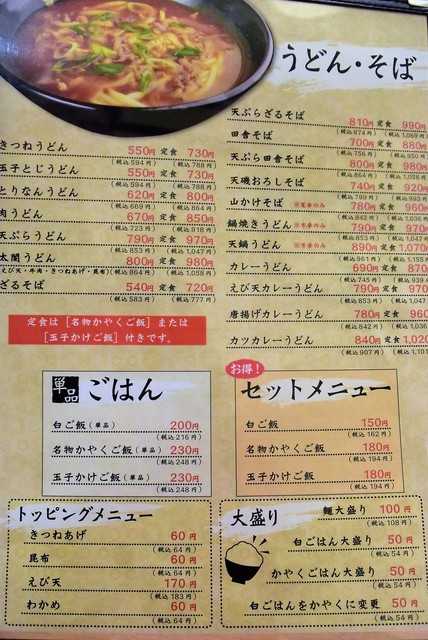 うどん・そば
きつねうどん 550円 定食 730円
(税込 594円) (税込 788円)
玉子とじうどん 550円 定食 730円
(税込 594円) (税込 788円)
とりなんうどん 620円 定食 800円
(税込 669円) (税込 864円)
肉うどん 670円 定食 850円
(税込 723円) (税込 918円)
天ぷらうどん 790円 定食 970円
(税込 853円) (税込 1,047円)
太閤うどん 800円 定食 980円
(えび天・牛肉・きつねあげ・昆布) (税込 864円) (税込 1,058円)
ざるそば 540円 定食 720円
(税込 583円) (税込 777円)
定食は［名物かやくご飯］または
［玉子かけご飯］付きです。
天ぷらざるそば 810円 定食 990円
(税込 874円) (税込 1,069円)
田舎そば 700円 定食 880円
(税込 756円) (税込 950円)
天ぷら田舎そば 800円 定食 980円
(税込 864円) (税込 1,058円)
天磯おろしそば 740円 定食 920円
(税込 799円) (税込 993円)
山かけそば ※夏季のみ 780円 定食 960円
(税込 842円) (税込 1,036円)
鍋焼きうどん ※冬季のみ 790円 定食 970円
(税込 853円) (税込 1,047円)
天鍋うどん ※冬季のみ 890円 定食 1,070円
(税込 961円) (税込 1,155円)
カレーうどん 690円 定食 870円
(税込 745円) (税込 939円)
えび天カレーうどん 790円 定食 970円
(税込 853円) (税込 1,047円)
唐揚げカレーうどん 780円 定食 960円
(税込 842円) (税込 1,036円)
カツカレーうどん 840円 定食 1,020円
(税込 907円) (税込 1,101円)
単品 ごはん
白ご飯(単品) 200円
(税込 216円)
名物かやくご飯(単品) 230円
(税込 248円)
玉子かけご飯(単品) 230円
(税込 248円)
お得！
セットメニュー
白ご飯 150円
(税込 162円)
名物かやくご飯 180円
(税込 194円)
玉子かけご飯 180円
(税込 194円)
トッピングメニュー
きつねあげ 60円
(税込 64円)
昆布 60円
(税込 64円)
えび天 170円
(税込 183円)
わかめ 60円
(税込 64円)
大盛り
麺大盛り 100円
(税込 108円)
白ごはん大盛り 50円
(税込 54円)
かやくごはん大盛り 50円
(税込 54円)
白ごはんをかやくに変更 50円
(税込 54円)